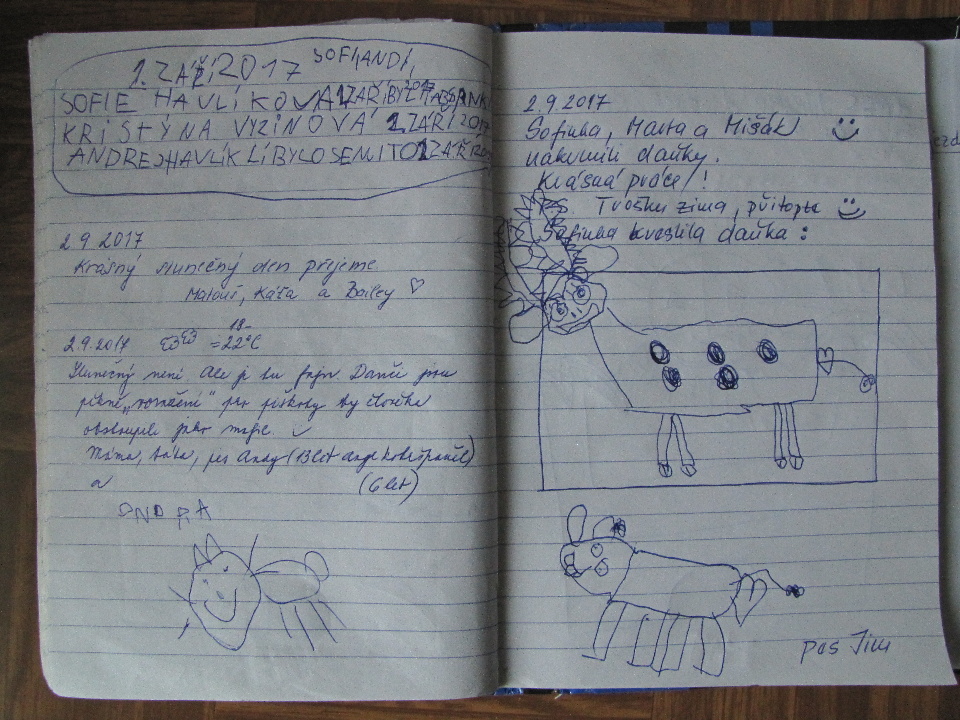 1. ZÁŘÍ 2017 SOFI, ANDI,
SOFIE HAVLÍKOVÁ 1 ZÁŘÍ BYL
KRISTÝNA VYZINOVÁ 1 ZÁŘÍ 2017
ANDREJ HAVLÍK LÍBYLO SE MI TO 1 ZÁŘÍ
2 9 2017
Krásný slunečný den přejeme
Matouš, Káťa a Bailey ♡
2.9.2017 18- = 22°C
Slunečný není ale je tu fajn. Daňci jsou
pěkně „rozmazlení" pro piškoty by člověka
obskoupili jako nic.
Máma, bába, pes Andy (13 let anglo kokršpaněl)
a (6 let)
ONDRA
2.9.2017
Sofinka, Marta a Mišák
nakrmili daňky.
Krásná práce!
P.S. Trošku zima, přitopte
Sofinka kreslila daňka:
pes Jim